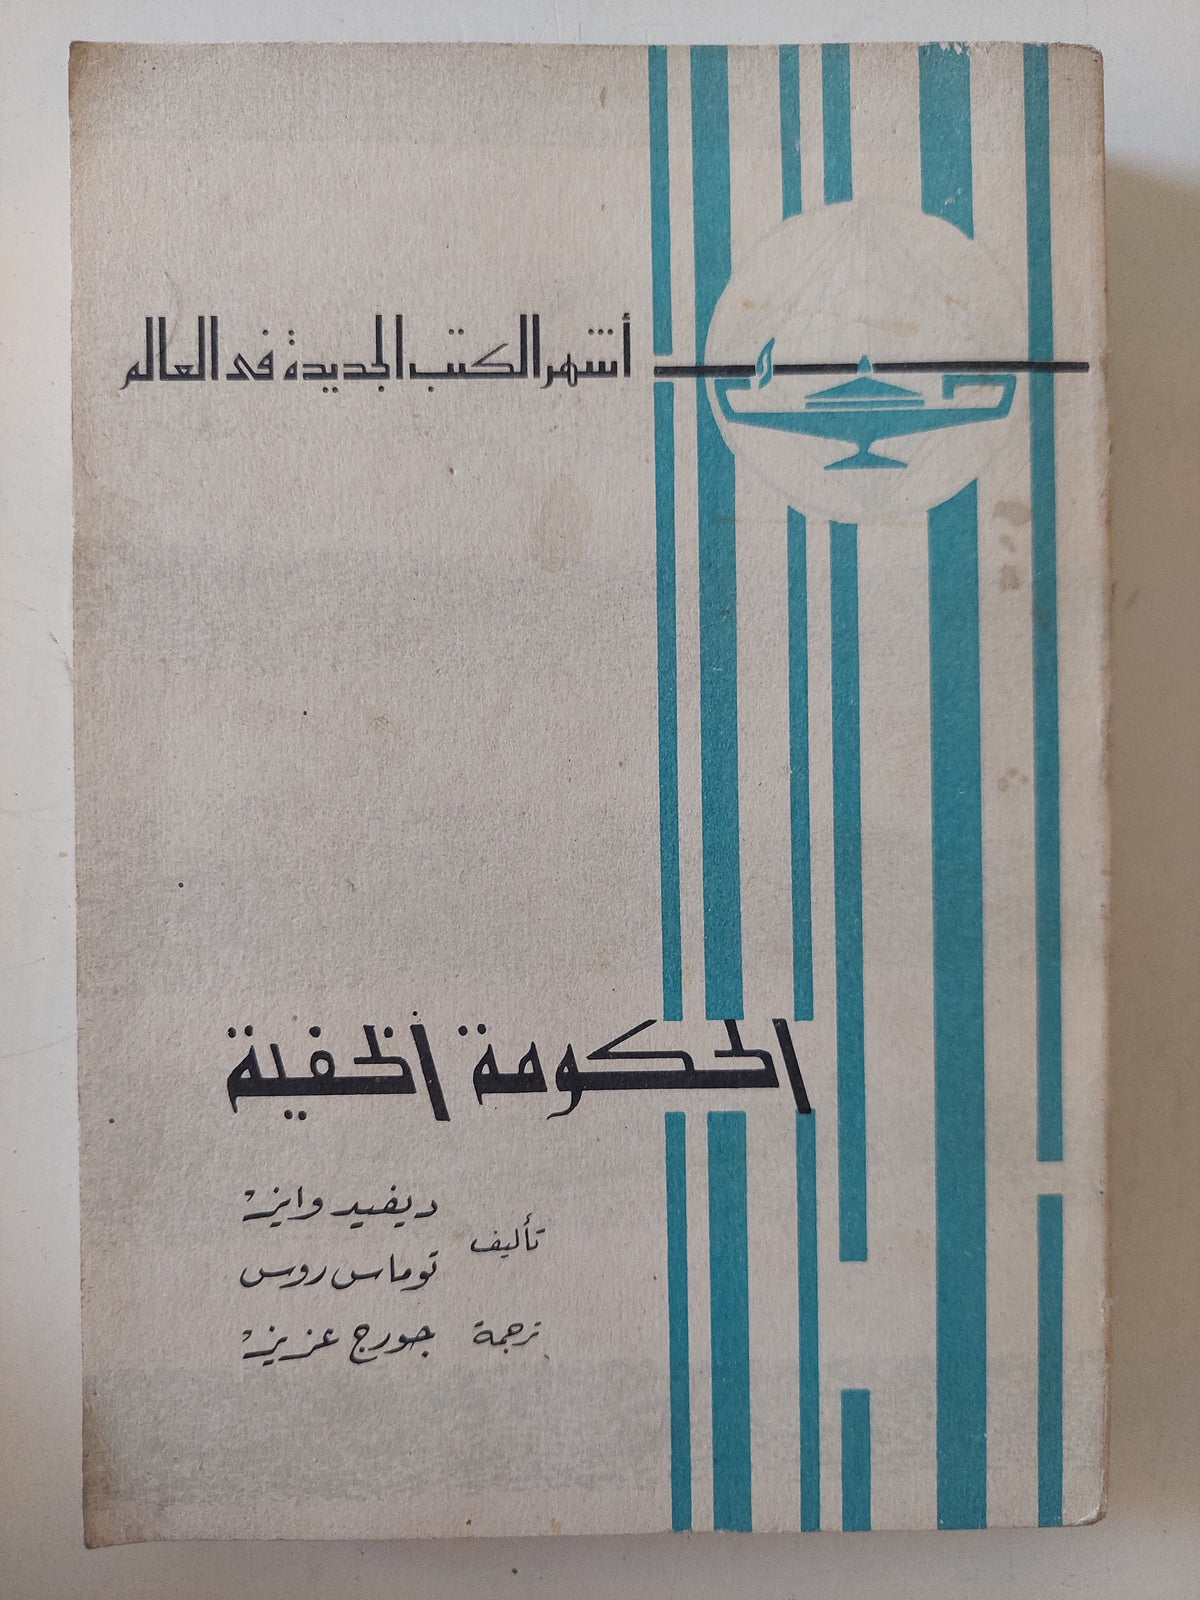 أشهر الكتب الجديدة فى العالم
الحكومة الخفية
تأليف
ديفيد وايز
توماس روس
ترجمة جورج عزيز